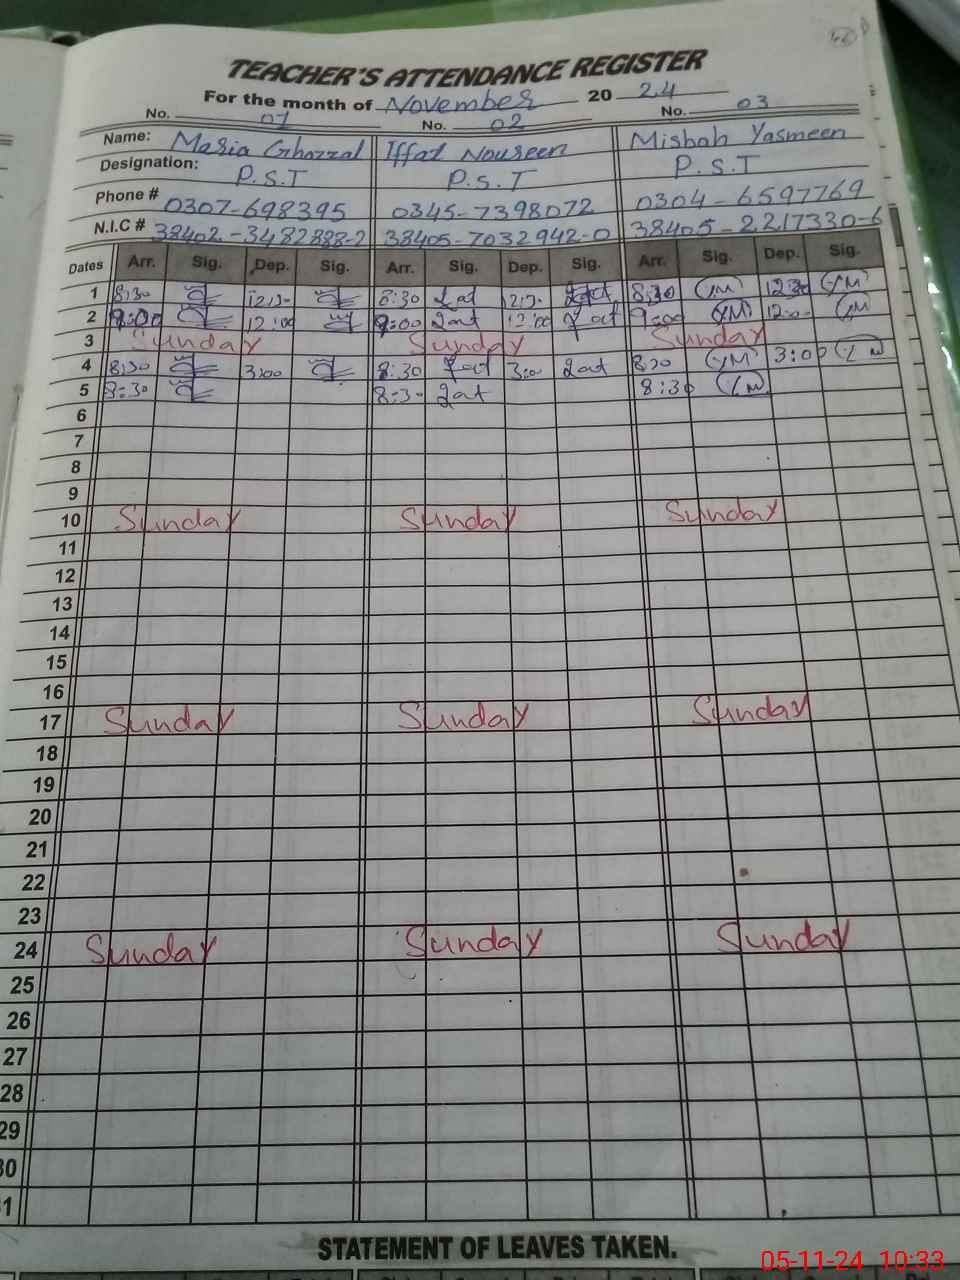 46
TEACHER'S ATTENDANCE REGISTER
For the month of November 2024
No. 01 No. 02 No. 03
Name: Maria Ghazzal Iffat Noureen Misbah Yasmeen
Designation: P.S.T P.S.T P.S.T
Phone # 0307-698395 0345-7398072 0304-6597769
N.I.C # 38402-3482888-2 38405-7032942-0 38405-2217330-6
Dates Arr. Sig. Dep. Sig. Arr. Sig. Dep. Sig. Arr. Sig. Dep. Sig.
1 8:30 12:30 8:30 12:30 8:30 12:30
2 9:00 12:00 9:00 12:00 9:00 12:00
3 Sunday Sunday Sunday
4 8:30 3:00 8:30 3:00 8:30 3:00
5 8:30 8:30 8:30
6
7
8
9
10 Sunday Sunday Sunday
11
12
13
14
15
16
17 Sunday Sunday Sunday
18
19
20
21
22
23
24 Sunday Sunday Sunday
25
26
27
28
29
30
31
STATEMENT OF LEAVES TAKEN.
05-11-24 10:33